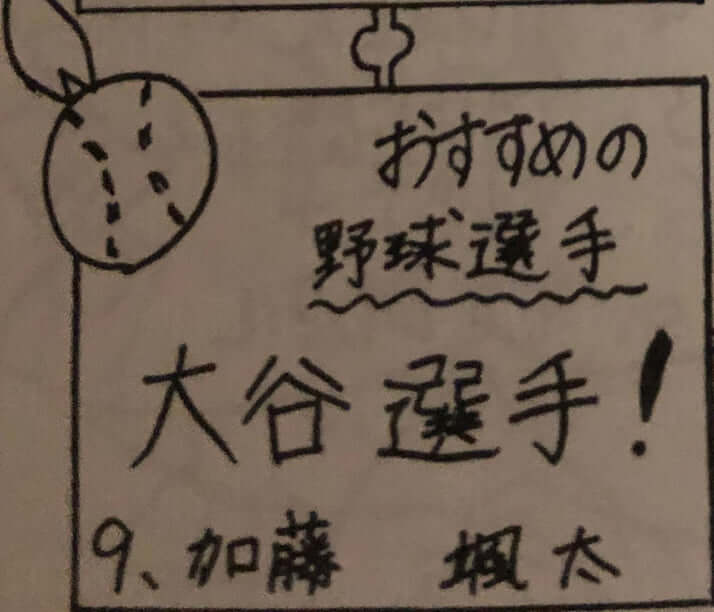 おすすめの
野球選手
大谷選手!
9、加藤 颯太